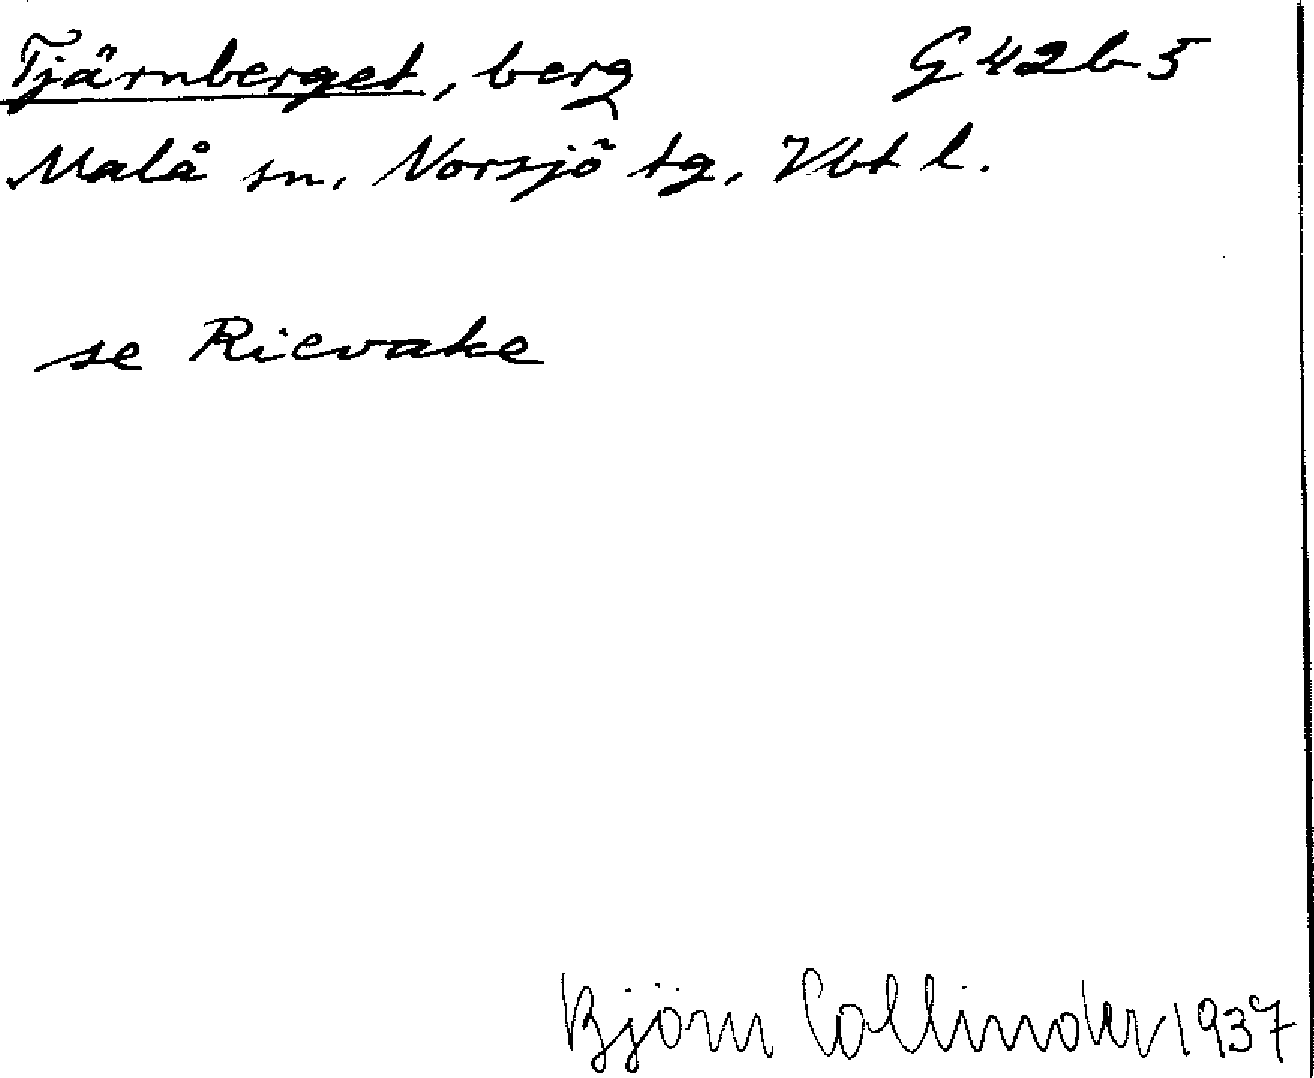 Tjärnberget, berg G 42 b 5
Malå sn, Norsjö tg, Vbt l.
se Rievake
Björn Collinder 1937